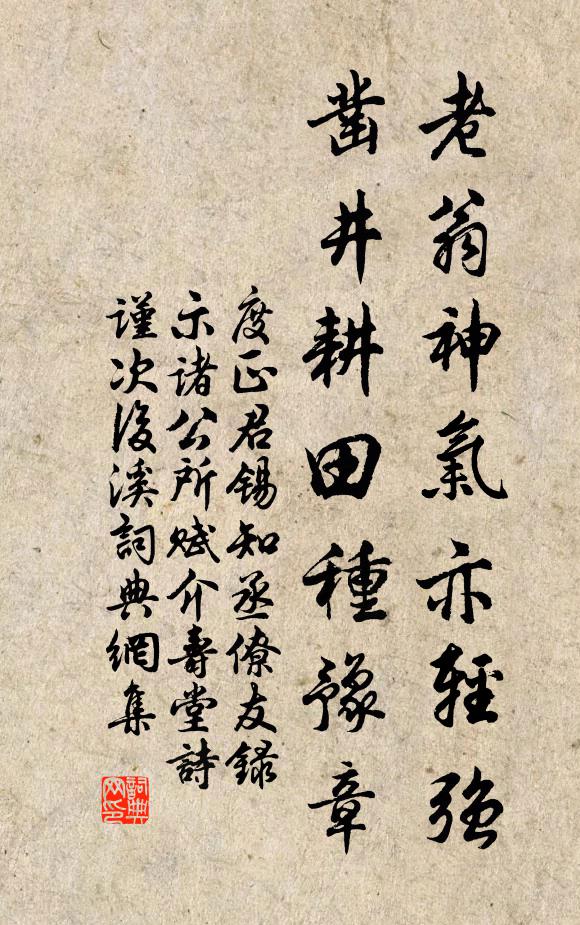 老翁神氣亦輕強
凿井耕田種豫章
度正君錫知丞僚友錄
示諸公所赋介壽堂詩
謹次後溪詞典網集
詞典
网印